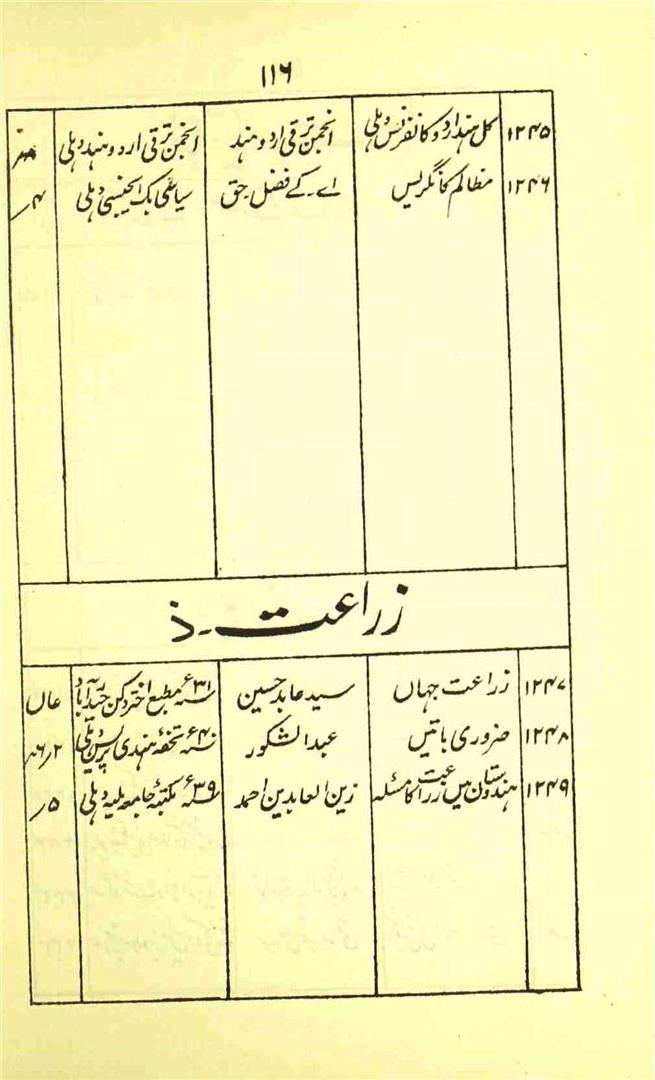 ۱۱۶
۱۲۴۵ کل ہند اردو کانفرنس دہلی انجمن ترقی اردو ہند انجمن ترقی اردو ہند دہلی
۱۲۴۶ مظالم کانگریس اے۔ کے فضل حق سیاسی بک ایجنسی دہلی ۴؍
زراعت۔ ذ
۱۲۴۷ زراعت جہاں سید عابد حسین ۳۱ء مطبع اختر دکن حیدرآباد
۱۲۴۸ ضروری باتیں عبدالشکور ۴۰ء تحفۂ ہندی پریس دہلی
۱۲۴۹ ہندوستان میں زراعت کا مسئلہ زین العابدین احمد ۳۹ء مکتبۂ جامعہ ملیہ دہلی ۵؍